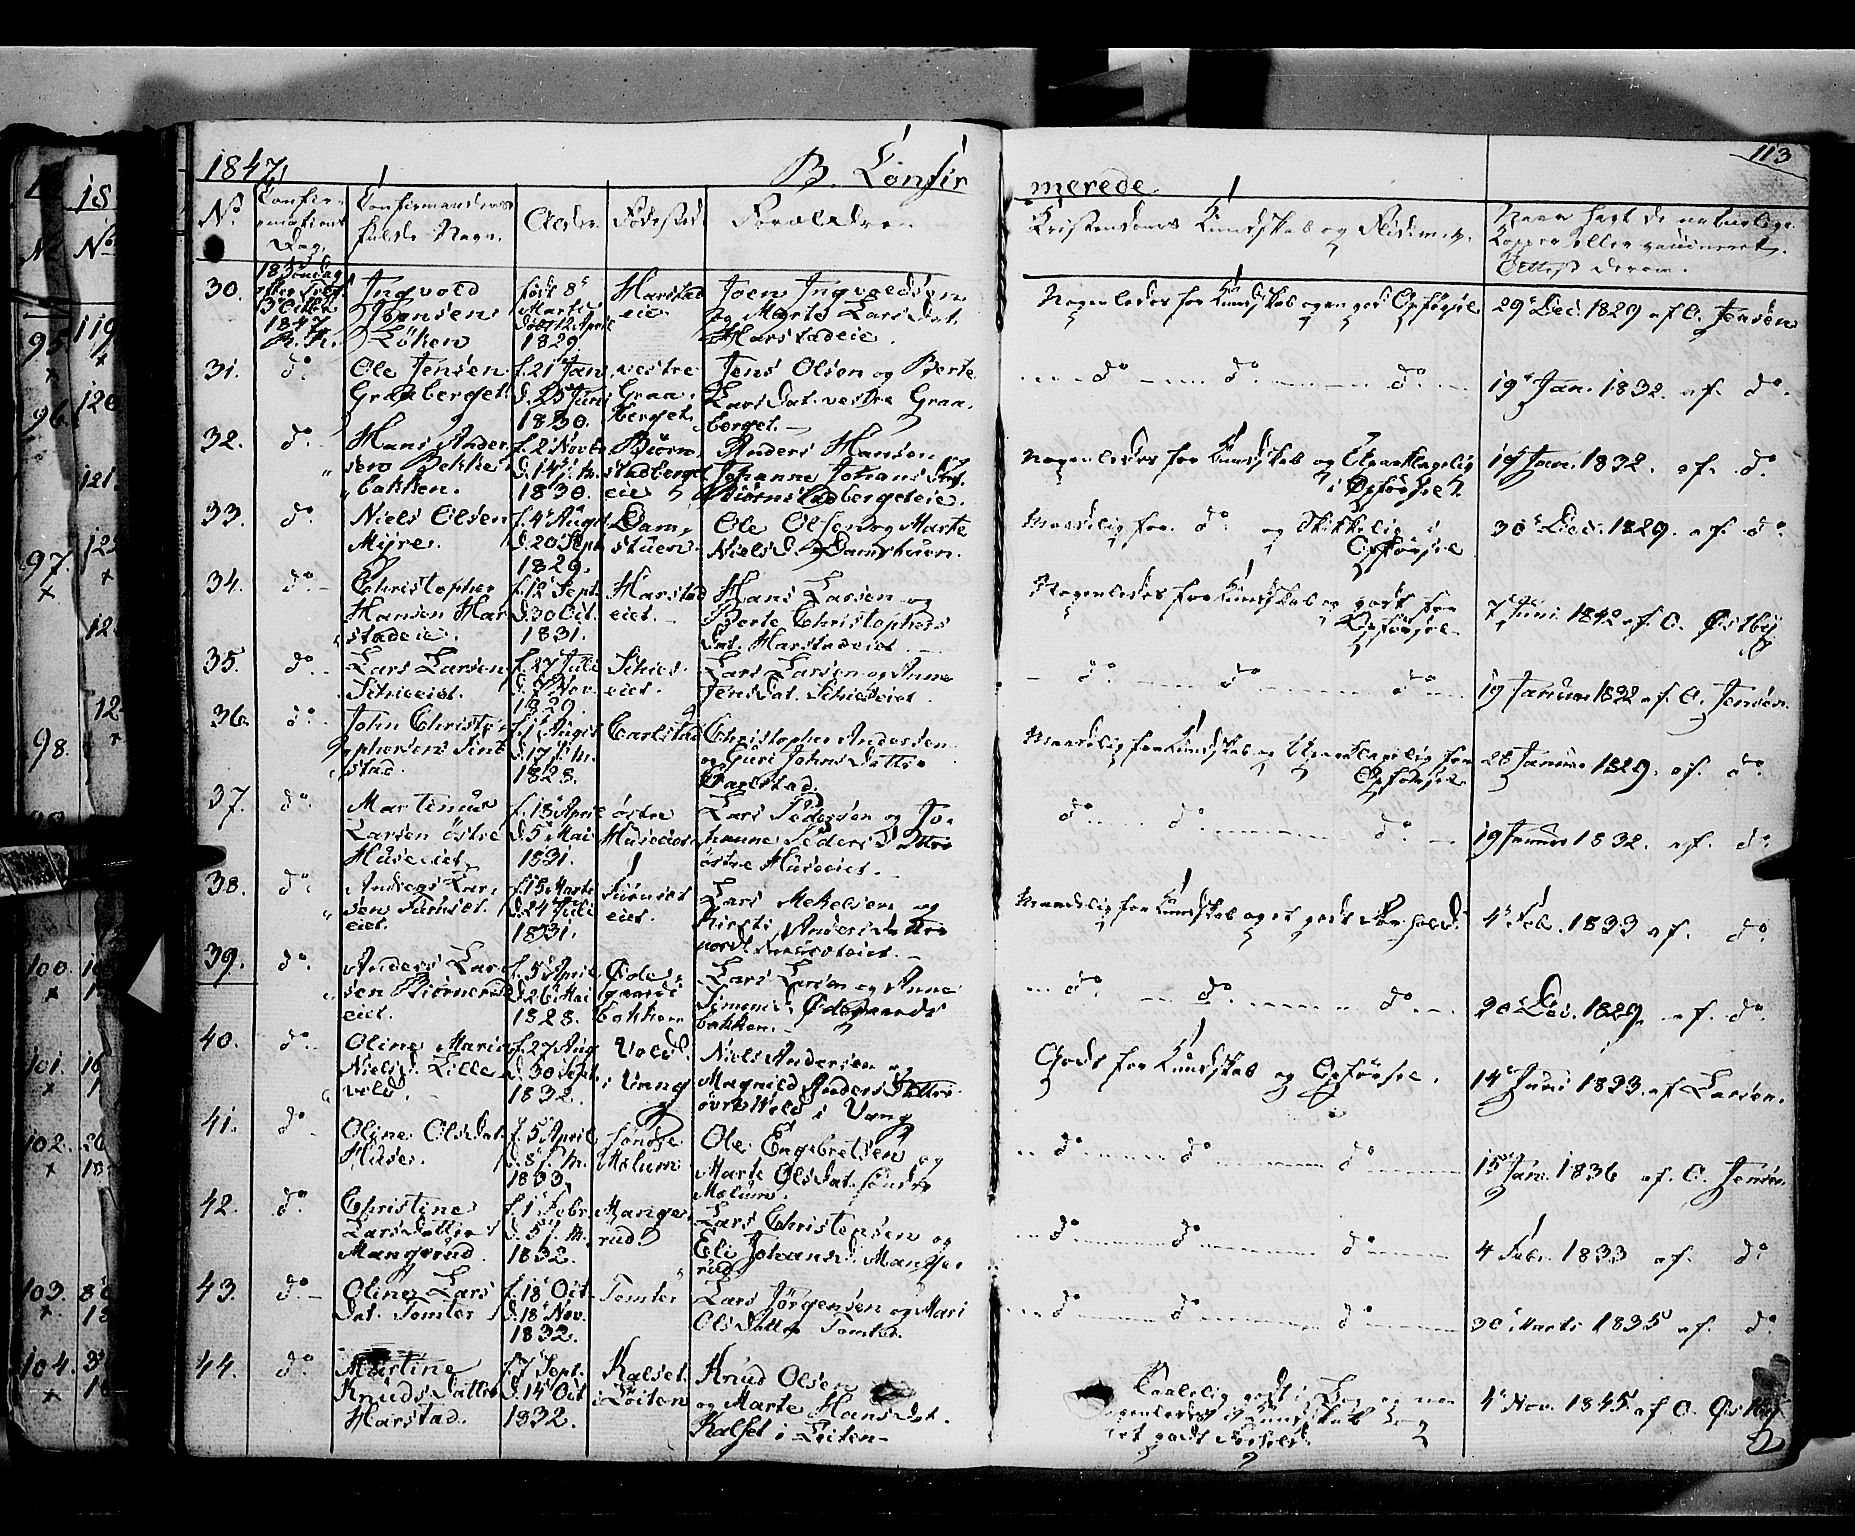 1847. B. Confirmerede. 113
No Confirmations Dag. Confirmandens fulde Navn. Alder. Fødested. Forældre. Kristendoms Kundskab og Flid Navn havt de naturlige Kopper eller vaccineret. Attest derom.
30. Søndag 3 October 1847 Ingvold Joensen Løken født 8de Marts døbt 12 April 1829. Harstadeie Joen Ingvoldsen og Marte Larsdat. Harstadeie. Nogenledes for Kundskab og en god Opførsel 29 Dec. 1829 af C. Jensen
31. do. Ole Jensen Graaberget. f. 21 Jan. d. 25 Juni 1830. vestre Graaberget. Jens Olsen og Berte Larsdat. vestre Graaberget. do do do 19 Jan. 1832. af. do.
32. do. Hans Andersen Bekkebakken. f. 2 Novbr d. 14 s. M. 1830. Biørnstadbergeteie Anders Hansen og Johanne Johansdat. Biørnstadbergeteie. Nogenledes for Kundskab og Upaaklagelig i Opførsel. 19 Jan. 1832. af. do.
33. do. Niels Olsen Myre. f. 4 Augst d. 20 Sept 1829. Damstuen. Ole Olsen og Marte Nielsd. Damstuen. Maadelig for do og Skikkelig i Opførsel 30 Dec. 1829. af do.
34. do. Christopher Hansen Harstadeie. f. 12 Sept. d. 30 Oct. 1831. Harstadeiet. Hans Larsen og Berte Christophersdat. Harstadeiet. Nogenledes for Kundskab og godt for Opførsel. 7de Juni 1842 af O. Østby
35. do. Lars Larsen f. 27 Juli d. 7 Nov. 1829. Lars Larsen og Anne Jensdat. do do do 19 Januar 1832 af C. Jensen.
36. do. John Christophersen f. 1 Augst d. 17 s. M. 1828. Carlstad Christopher Andersen og Guri Johnsdatter Carlstad. Maadelig for Kundskab og Upaaklagelig for Opførsel. 28 Januar 1829. af. do.
37. do. Martinus Larsen østre Huseeiet. f. 13 April d. 5 Mai 1831. østre Huseeiet Lars Pedersen og Johanne Pedersdatter østre Huseeiet. do do do. 19 Januar 1832. af do
38. do. Andreas Larsen Furuseteiet. f. 15 Marts d. 24 Juli 1831. Furuseteiet. Lars Mekelsen og Kirsti Andersdatter Maadelig for Kundskab og et godt Forhold. 4 Feb. 1833 af. do.
39. do. Anders Larsen Biørnerudeiet. f. 5 April d. 26 Mai 1828. Ødegaardsbakken Lars Larsen og Anne Simensd. Ødegaardsbakken. do do do. 20 Dec. 1829. af. do.
40. do. Oline Marie Nielsd. Lille Vold. f. 27 Aug d. 30 Sept. 1832. Vold i Vang Niels Andersen og Magnild Andersdatter øvre Vold i Vang Godt for Kundskab og Opførsel. 14 Juni 1833 af Larsen.
41. do Oline Olsdat. Huse. f. 5 April d. 8 s. M. 1833. søndre Melum Ole Engebretsen og Marte Olsdat. søndre Melum. do do do 15 Jan. 1836 af. C. Jensen
42. do. Christine Larsdatter Mangerud f. 1 Febr. d. 5 s. M. 1832. Mangerud Lars Christensen og Eli Johansd. Mangerud. do do do 4 Febr. 1833 af. do
43. do. Oline Larsdat. Tomter f. 18 Oct d. 18 Nov. 1832. Tomter Lars Jørgensen og Mari Olsdatter Tomter. do do do 30 Marts 1835 af. do.
44. do. Martine Knudsdatter Harstad. f. 7 Sept. d. 14 Oct 1832. Kalset i Løiten Knud Olsen og Marte Hansdat. Kalset i Løiten. Taalelig godt i Bog og nogenledes i Kundskab og et godt Forhold. 4 Nov. 1845 af O. Østby